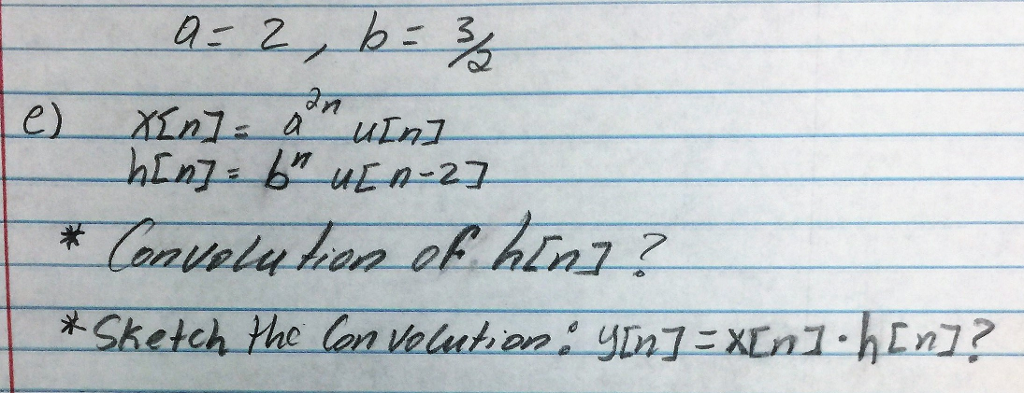 a = 2, b = 3/2
e) x[n] = a^2n u[n]
h[n] = b^n u[n-2]
* Convolution of h[n]?
* Sketch the Convolution: y[n] = x[n] · h[n]?